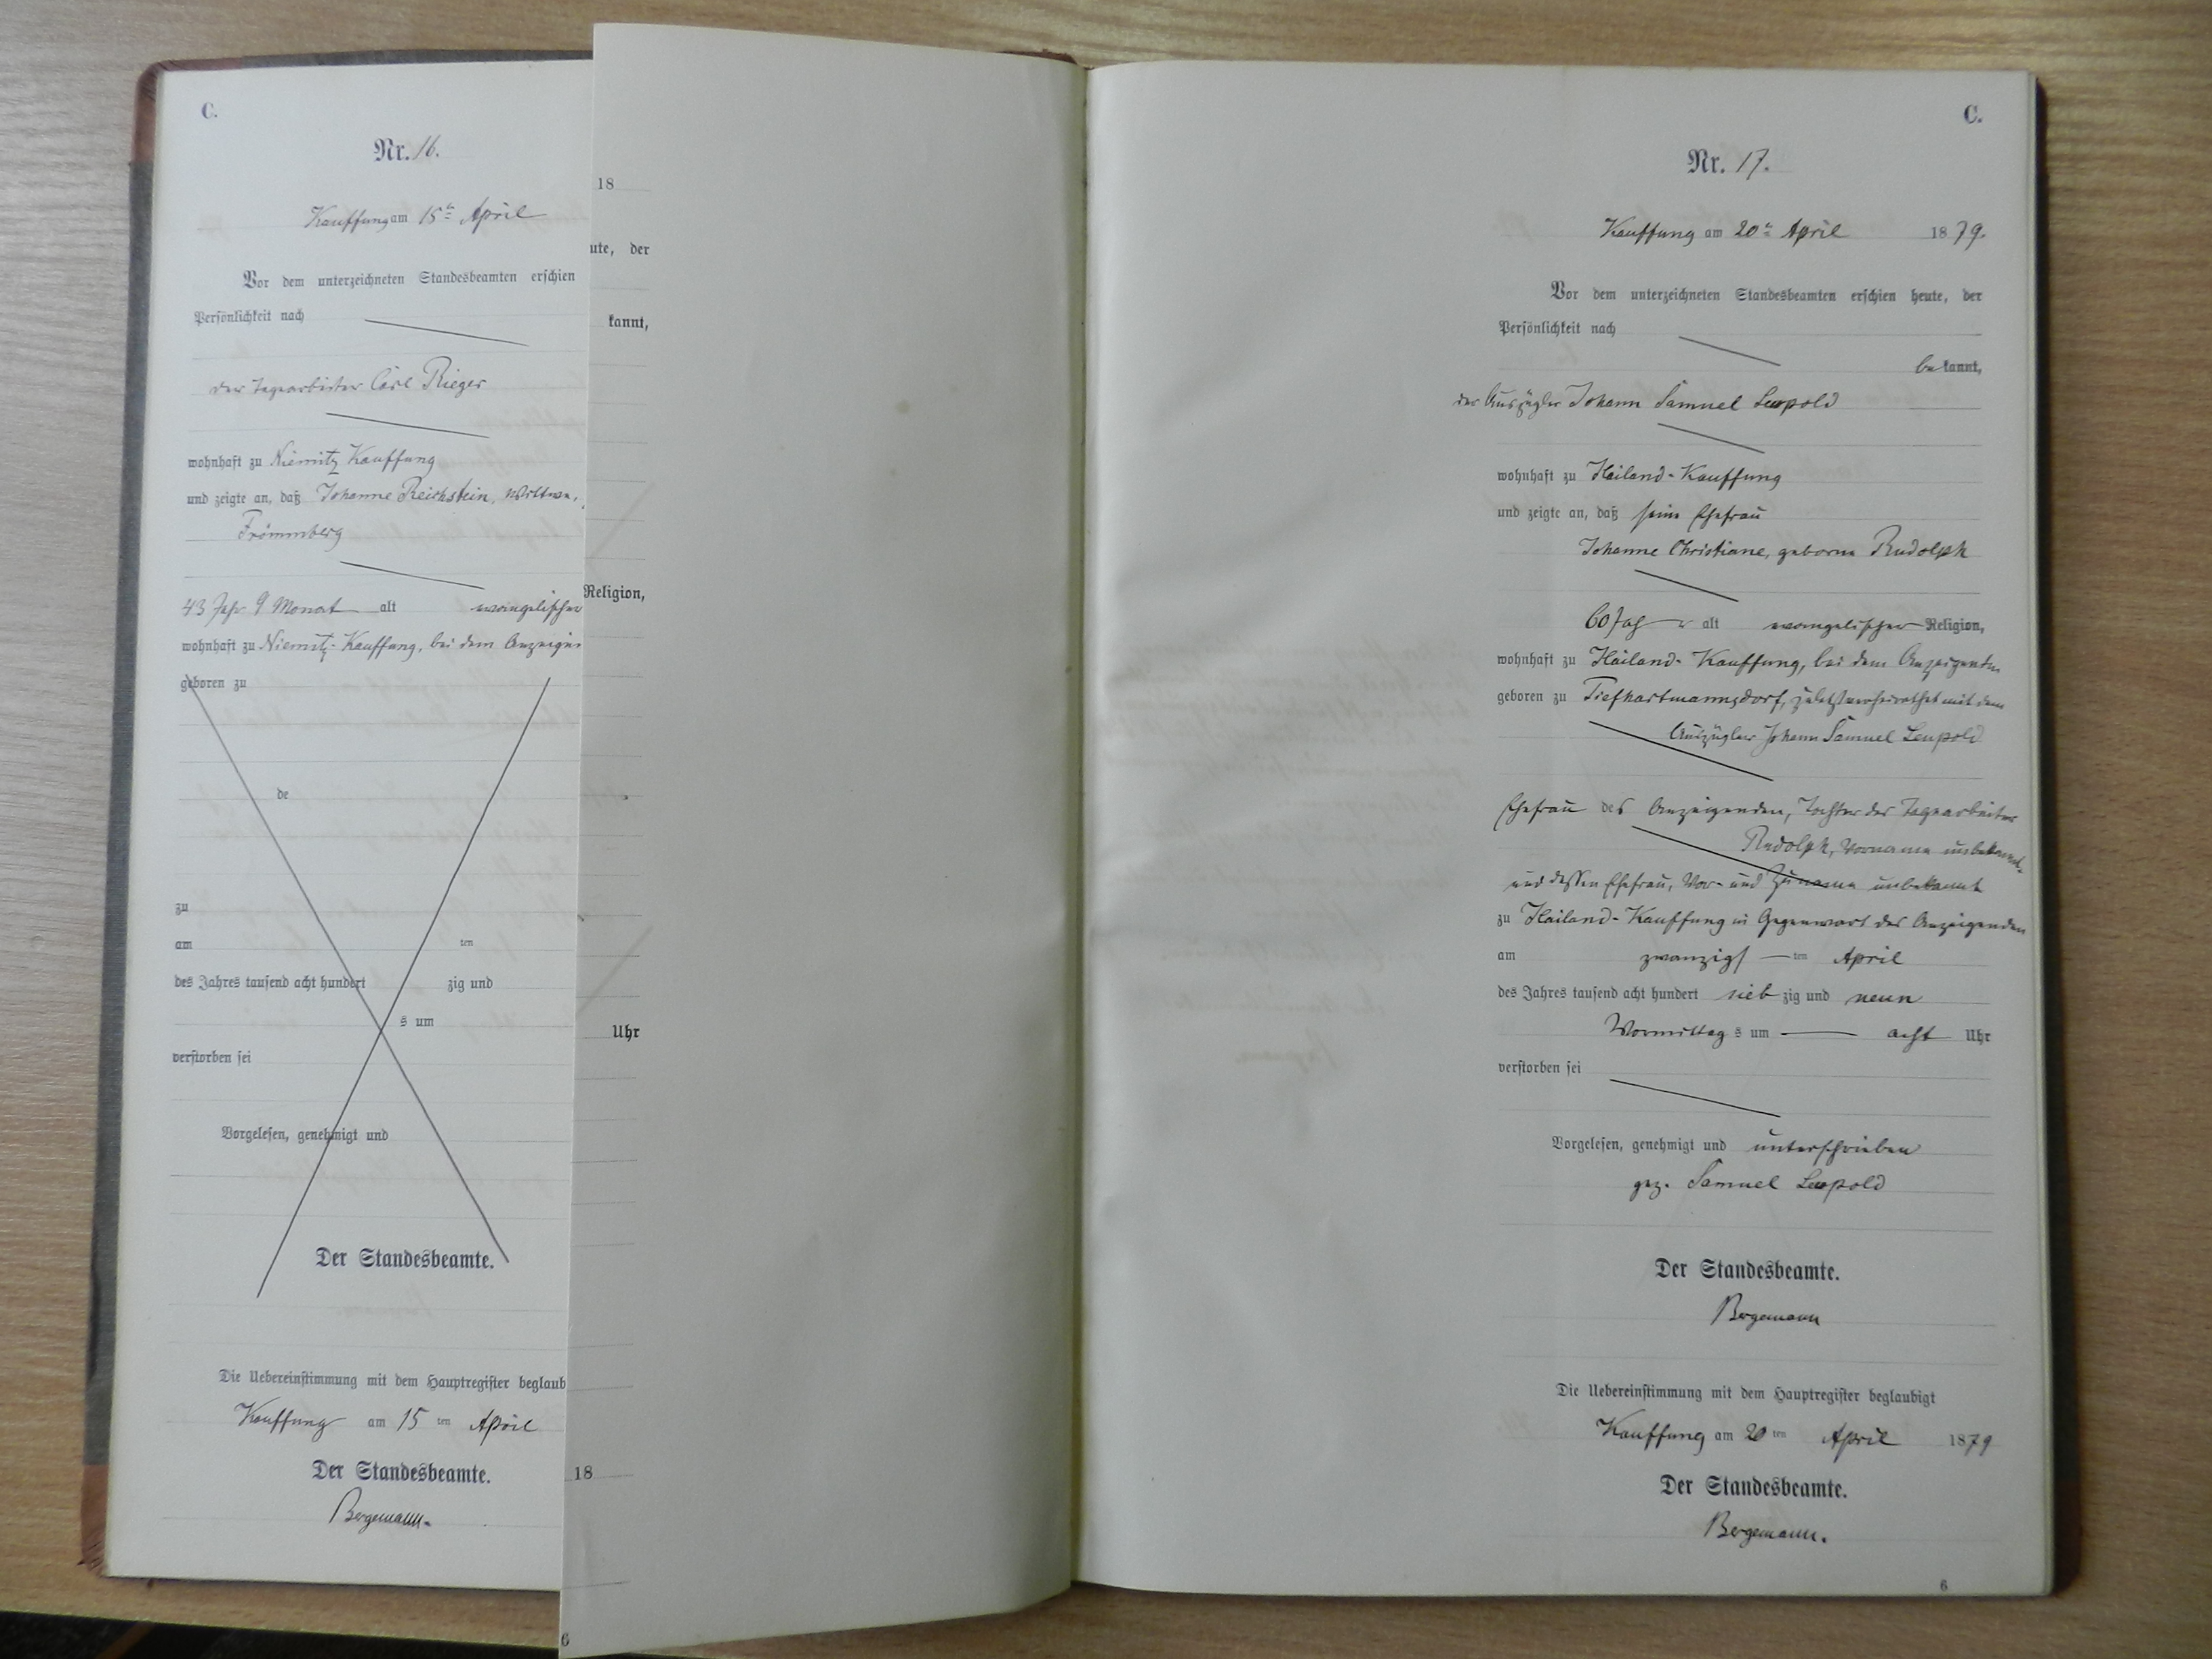 C.
Nr. 16.
Kauffung am 15te April
Vor dem unterzeichneten Standesbeamten erschien
Persönlichkeit nach
der Tagearbeiter Carl Rieger
wohnhaft zu Niemitz Kauffung
und zeigte an, daß Johanne Reichstein, Wittwe,
Frömmberg
43 Jahr 9 Monat alt evangelischer
wohnhaft zu Niemitz-Kauffung, bei dem Anzeigen
geboren zu
de
zu
am ten
des Jahres tausend acht hundert zig und
s um
verstorben sei
Vorgelesen, genehmigt und
Der Standesbeamte.
Die Uebereinstimmung mit dem Hauptregister beglaub
Kauffung am 15 ten April
Der Standesbeamte.
Bergemann.
18
ute, der
kannt,
Religion,
Uhr
18
6
C.
Nr. 17.
Kauffung am 20te April 1879.
Vor dem unterzeichneten Standesbeamten erschien heute, der
Persönlichkeit nach
bekannt,
der Auszügler Johann Samuel Leupold
wohnhaft zu Hailand-Kauffung
und zeigte an, daß seine Ehefrau
Johanne Christiane, geborne Rudolph
60 Jah r alt evangelischer Religion,
wohnhaft zu Hailand-Kauffung, bei dem Anzeigenden
geboren zu Tiefhartmannsdorf, zuletzt verheirathet mit dem
Auszügler Johann Samuel Leupold
Ehefrau des Anzeigenden, Tochter des Tagearbeiter
Rudolph, Vorname unbekannt
und dessen Ehefrau, Vor- und Zuname unbekannt
zu Hailand-Kauffung in Gegenwart des Anzeigenden
am zwanzigs ten April
des Jahres tausend acht hundert sieb zig und neun
Vormittag s um acht Uhr
verstorben sei
Vorgelesen, genehmigt und unterschrieben
gez. Samuel Leupold
Der Standesbeamte.
Bergemann
Die Uebereinstimmung mit dem Hauptregister beglaubigt
Kauffung am 20 ten April 1879
Der Standesbeamte.
Bergemann.
6